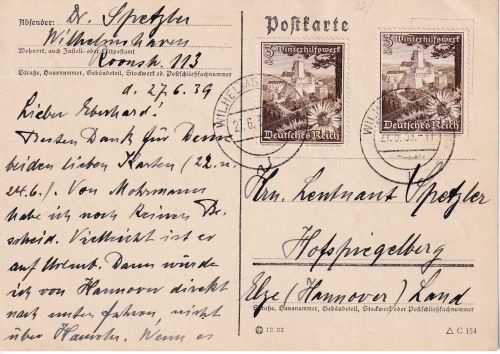 Absender: Dr. Spetzler
Wilhelmshaven
Wohnort, auch Zustell- oder Leitpostamt
Roonstr. 113
Straße, Hausnummer, Gebäudeteil, Stockwerk od. Postschließfachnummer
d. 27.6.39
Lieber Eberhard!
Besten Dank für Deine
beiden lieben Karten (22. u.
24.6.). Von Mohrmann
habe ich noch keinen Be-
scheid. Vielleicht ist er
auf Urlaub. Dann würde
ich von Hannover direkt
nach unten fahren, nicht
über Wenn es
Postkarte
3 Winterhilfswerk
Deutsches Reich
3 Winterhilfswerk
Deutsches Reich
WILHELMS
27.6.
WILH
Hrn. Leutnant Spetzler
Hofspiegelberg
Elze (Hannover) Land
Straße, Hausnummer, Gebäudeteil, Stockwerk oder Postschließfachnummer
12.38
C 154